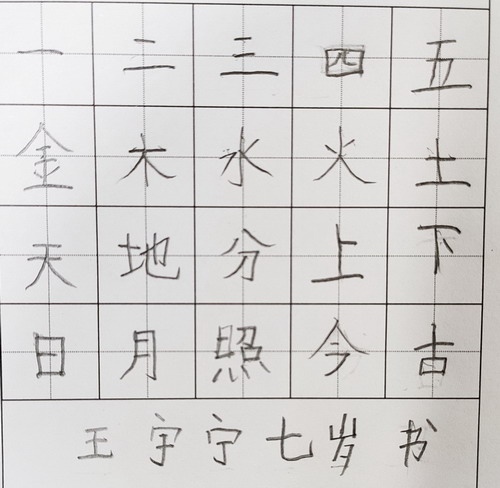 一二三四五
金木水火土
天地分上下
日月照今古
王宇宁七岁书